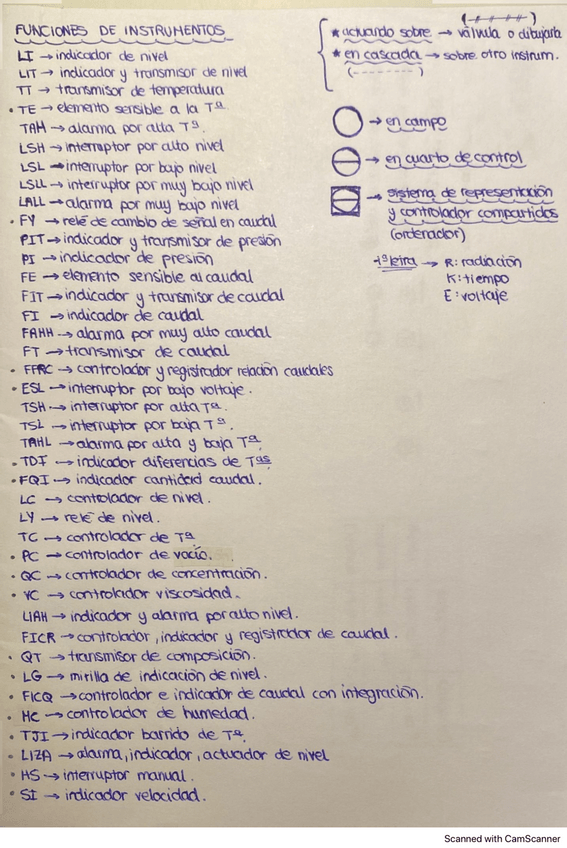 FUNCIONES DE INSTRUMENTOS
LI → indicador de nivel
LIT → indicador y transmisor de nivel
TT → transmisor de temperatura
• TE → elemento sensible a la Tª
TAH → alarma por alta Tª.
LSH → interruptor por alto nivel
LSL → interruptor por bajo nivel
LSLL → interruptor por muy bajo nivel
LALL → alarma por muy bajo nivel
• FY → relé de cambio de señal en caudal
PIT → indicador y transmisor de presión
PI → indicador de presión
FE → elemento sensible al caudal
FIT → indicador y transmisor de caudal
FI → indicador de caudal
FAHH → alarma por muy alto caudal
FT → transmisor de caudal
• FFRC → controlador y registrador relación caudales
• ESL → interruptor por bajo voltaje.
TSH → interruptor por alta Tª.
TSL → interruptor por baja Tª.
TAHL → alarma por alta y baja Tª.
• TDI → indicador diferencias de Tªs
• FQI → indicador cantidad caudal.
LC → controlador de nivel.
LY → relé de nivel.
TC → controlador de Tª
• PC → controlador de vacío.
• QC → controlador de concentración.
• VC → controlador viscosidad.
LIAH → indicador y alarma por alto nivel.
FICR → controlador, indicador y registrador de caudal.
• QT → transmisor de composición.
• LG → mirilla de indicación de nivel.
• FICQ → controlador e indicador de caudal con integración.
• MC → controlador de humedad.
• TJI → indicador barrido de Tª.
• LIZA → alarma, indicador, actuador de nivel
• HS → interruptor manual.
• SI → indicador velocidad.
* actuando sobre → válvula o dibujarla
* en cascada → sobre otro instrum.
→ en campo
→ en cuarto de control
→ sistema de representación
y controlador compartidos
(ordenador)
1ª letra → R: radiación
K: tiempo
E: voltaje
Scanned with CamScanner